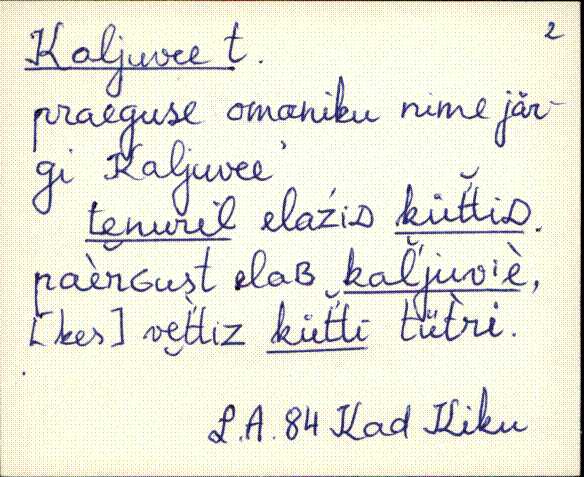 2
Kaljuvee t.
praeguse omaniku nime jär-
gi Kaljuvee'
tenuril elaźiD küttiD.
paèrGust elaB kaljuviè,
[kes] vèttiz kütti tütri.
L.A. 84 Kad Kiku